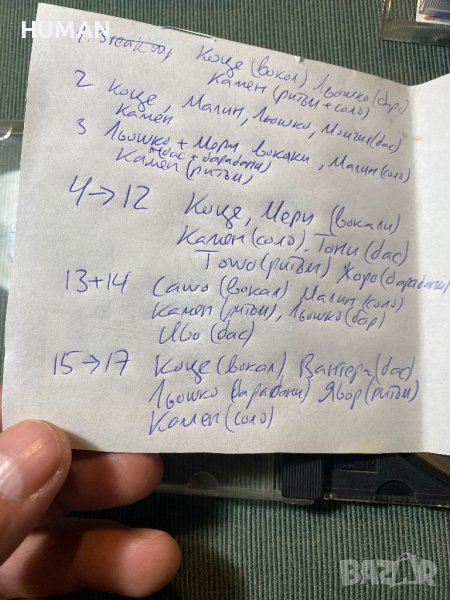 HUMAN
1. Steak out Коце (вокал) Льошко (бар)
Камен (ритъм + соло)
2 Коце, Малин, Льошко, (бас)
Камен
3 Льошко + Мери, вокали, Малин (соло)
+ бас + барабани)
Камен (ритъм)
4 → 12 Коце, Мери (вокали)
Камен (соло). Тони (бас)
Тошо (ритъм) Жоро (барабани)
13 + 14 Сашо (вокал) Малин (соло)
Камен (ритъм), Льошко (бар)
Иво (бас)
15 → 17 Коце (вокал), (бас)
Льошко (барабани) Явор (ритъм)
Камен (соло)
BAZAR